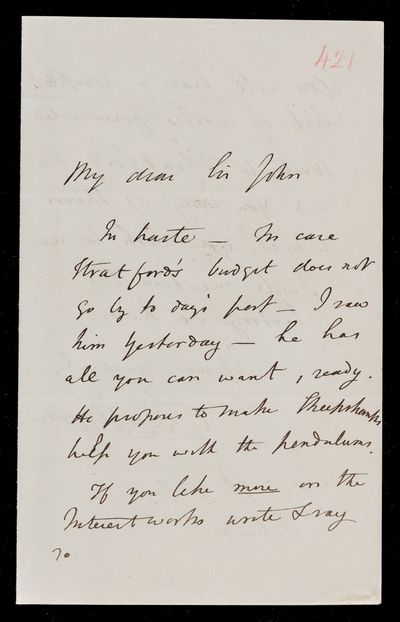 421
My dear Sir John
In haste – In case
Stratford's budget does not
go by to day's post – I saw
him yesterday – he has
all you can want, ready.
He proposes to make Sheepshanks
help you with the pendulums.
If you like more on the
Interest works write & say
70